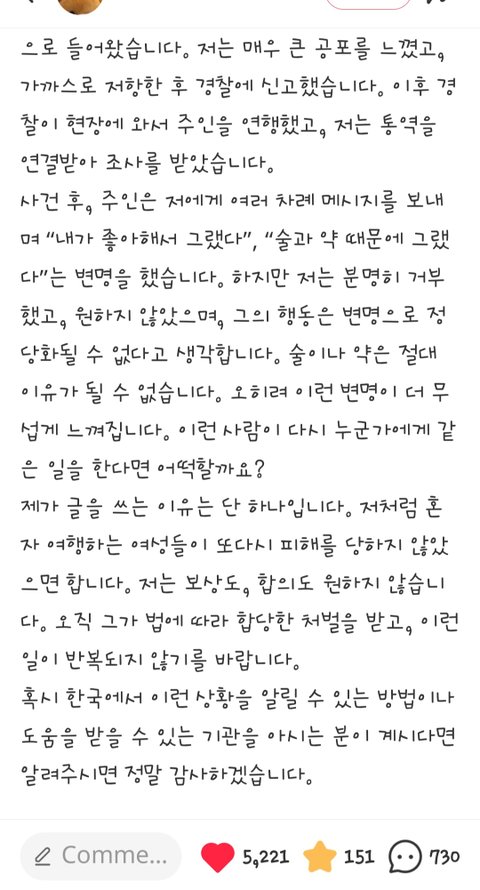 으로 들어왔습니다. 저는 매우 큰 공포를 느꼈고,
가까스로 저항한 후 경찰에 신고했습니다. 이후 경
찰이 현장에 와서 주인을 연행했고, 저는 통역을
연결받아 조사를 받았습니다.
사건 후, 주인은 저에게 여러 차례 메시지를 보내
며 “내가 좋아해서 그랬다”, “술과 약 때문에 그랬
다”는 변명을 했습니다. 하지만 저는 분명히 거부
했고, 원하지 않았으며, 그의 행동은 변명으로 정
당화될 수 없다고 생각합니다. 술이나 약은 절대
이유가 될 수 없습니다. 오히려 이런 변명이 더 무
섭게 느껴집니다. 이런 사람이 다시 누군가에게 같
은 일을 한다면 어떡할까요?
제가 글을 쓰는 이유는 단 하나입니다. 저처럼 혼
자 여행하는 여성들이 또다시 피해를 당하지 않았
으면 합니다. 저는 보상도, 합의도 원하지 않습니
다. 오직 그가 법에 따라 합당한 처벌을 받고, 이런
일이 반복되지 않기를 바랍니다.
혹시 한국에서 이런 상황을 알릴 수 있는 방법이나
도움을 받을 수 있는 기관을 아시는 분이 계시다면
알려주시면 정말 감사하겠습니다.
Comme... 5,221 151 730